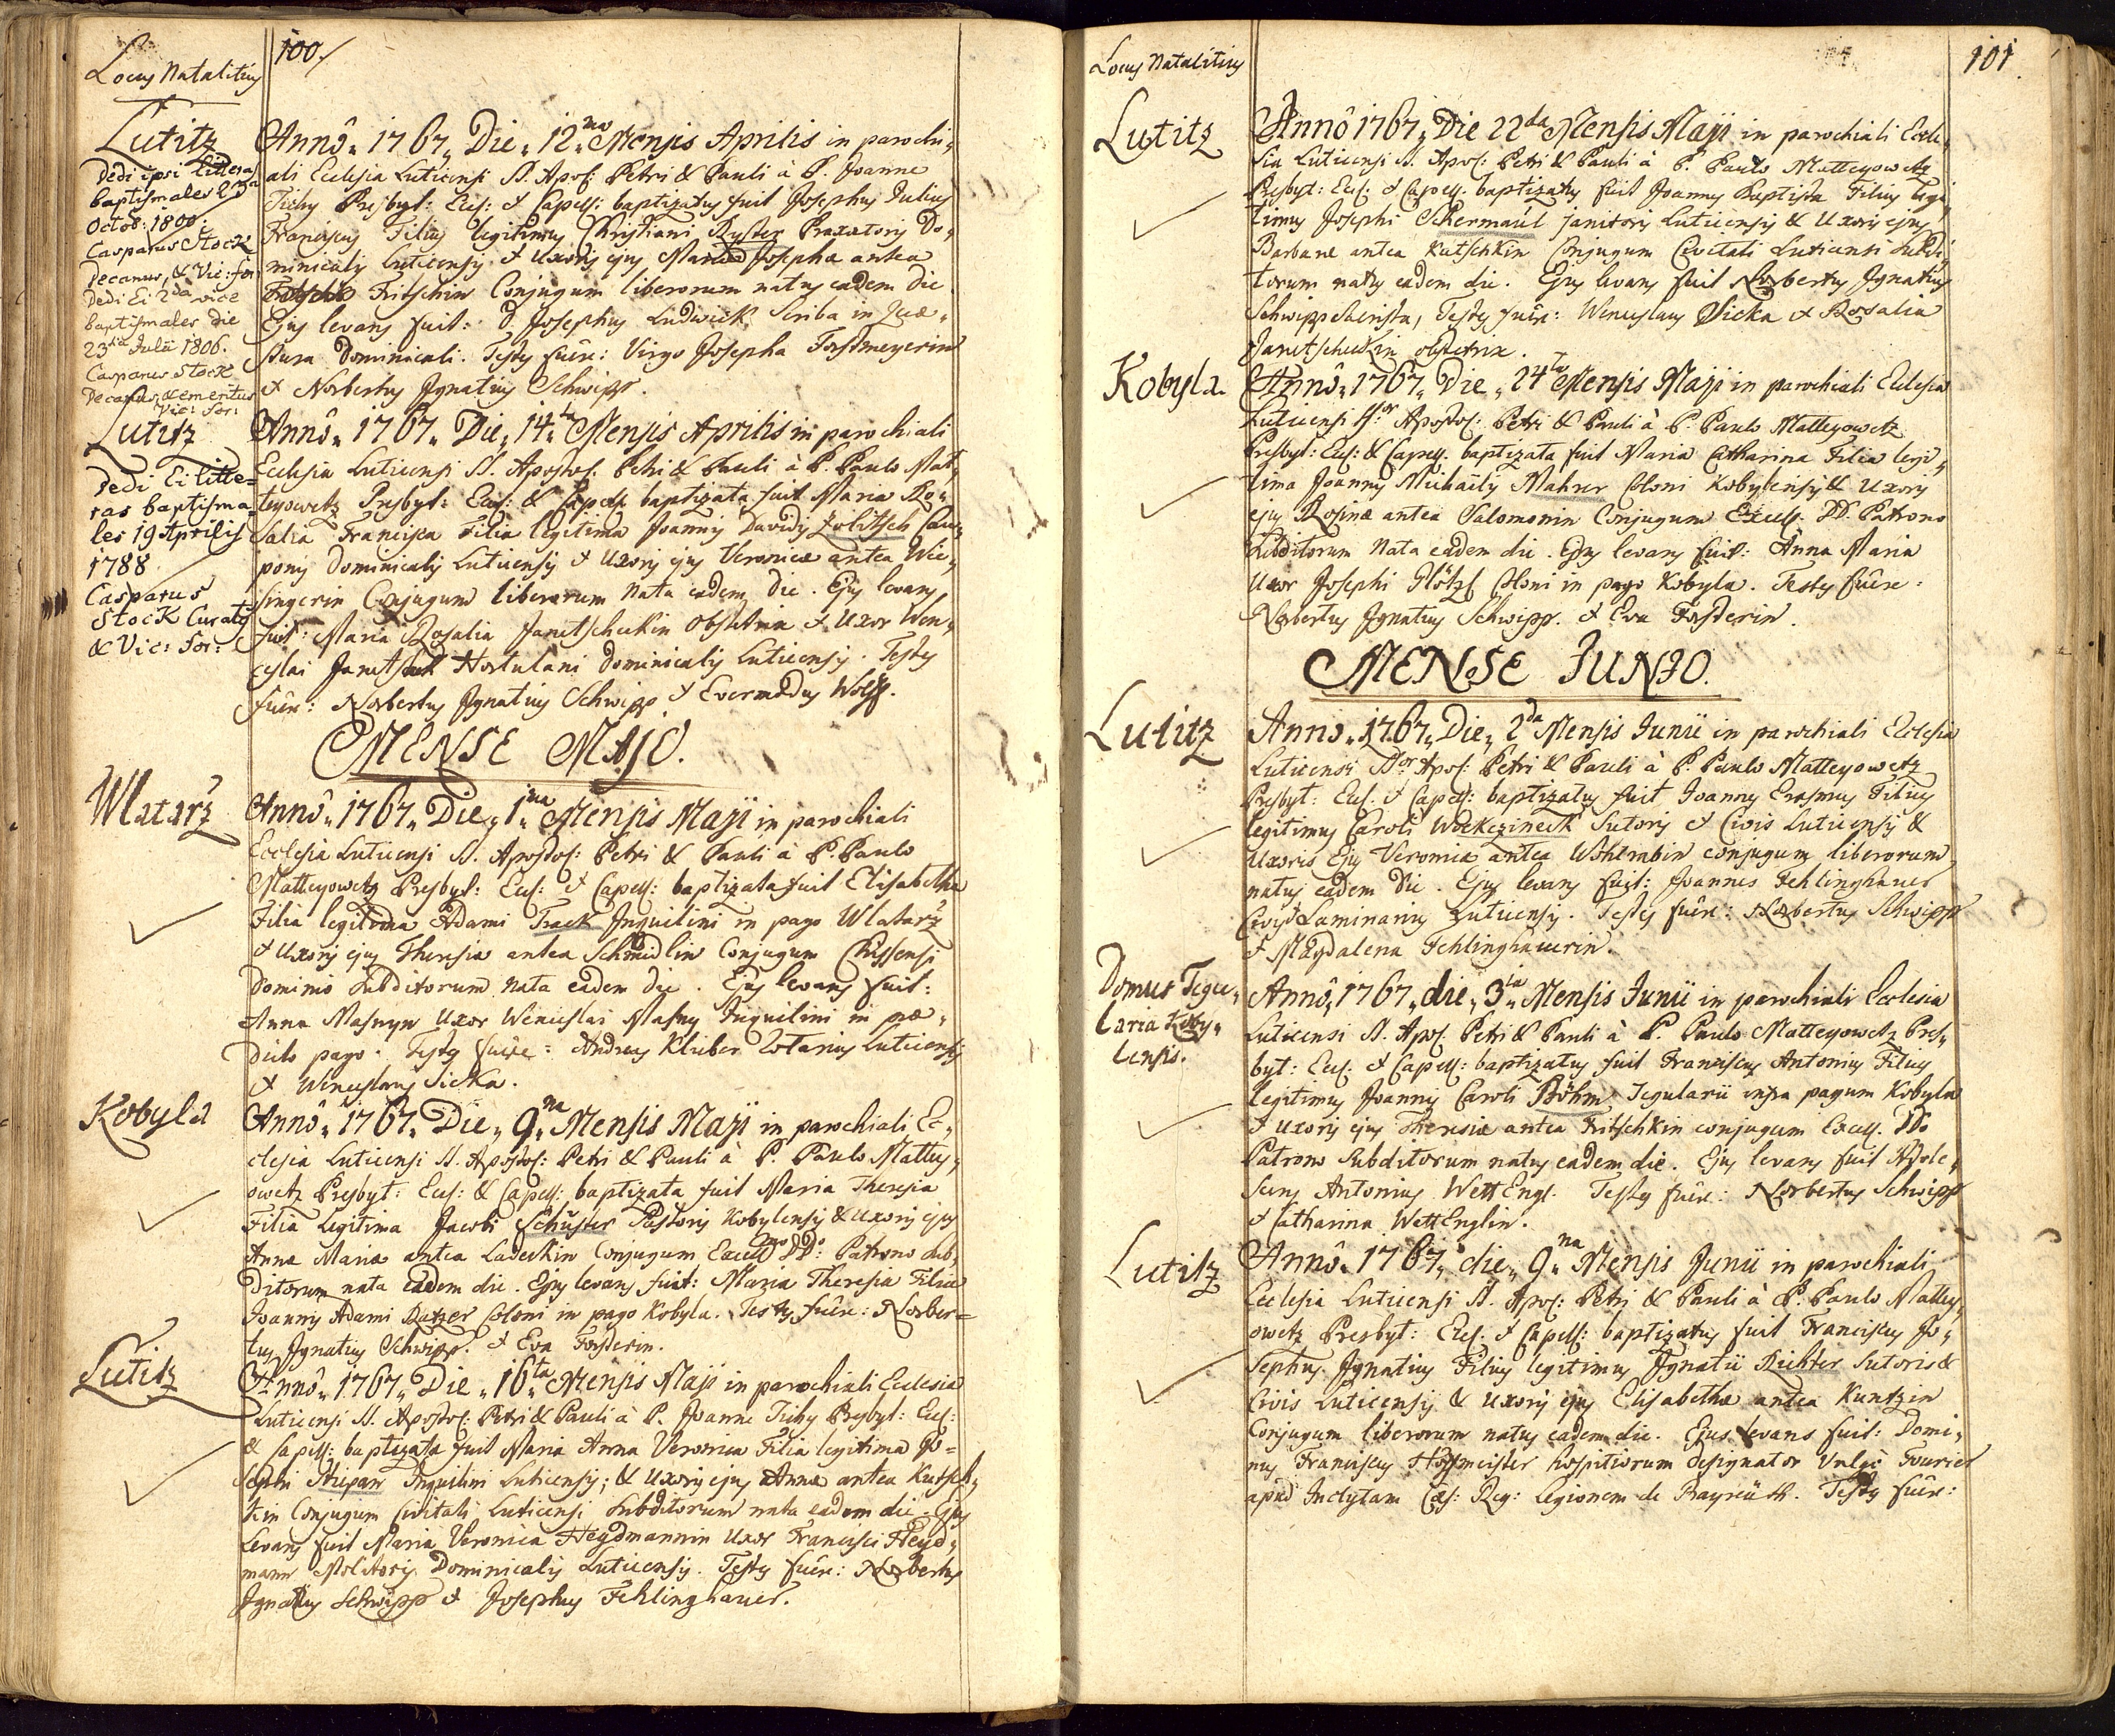 100
Locus Natalitius
Lutitz
Dedi ipsi litteras
baptismales 2da
Octob: 1800:
Casparus Stock
Decanus, & Vic: for:
Dedi Ei 2da vice
baptismales die
23tia Julii 1806.
Casparus Stock
Decanus emeritus
Vic: for:
Annô 1767 Die 12ma Mensis Aprilis in parochi„
ali Ecclesia Luticensi SS. Apos: Petri & Pauli à P. Joanne
Tichy Presbyt: Eccl: & Capell: baptizatus fuit Josephus Julius
Franciscus Filius legitimus Christiani Ryster Braxatoris Do„
minicalis Luticensis & Uxoris ejus Mariae Josephae antea
Fritschin Conjugum liberorum natus eadem die
Ejus levans fuit: D. Josephus Ludwick Scriba in Quae„
stura Dominicali. Testes fuêre: Virgo Josepha Forstmeyerin
& Norbertus Ignatius Schwipp.
Lutitz
Dedi Ei litte=
ras baptisma„
les 19 Aprilis
1788
Casparus
Stock Curatus
& Vic: for:
Annô 1767 Die 14ta Mensis Aprilis in parochiali
Ecclesia Luticensi SS. Apostol: Petri & Pauli à P. Paulo Mat„
teyowetz Presbyt: Eccl: & Capell: baptizata fuit Maria Ro„
salia Francisca Filia legitima Joannis Davidis Jolitsch Cau„
ponis Dominicalis Luticensis & Uxoris ejus Veronicae antea Wie„
singerin Conjugum liberorum nata eadem die. Ejus levans
fuit: Maria Rosalia Janetscheckin Obstetrix & Uxor Wen„
ceslai Hortulani Dominicalis Luticensis. Testes
fuêre: Norbertus Ignatius Schwipp & Evermodus Wolff.
MENSE MAJO.
Wlatarž
Annô 1767 Die 1ma Mensis Maji in parochiali
Ecclesia Luticensi SS. Apostol: Petri & Pauli à P. Paulo
Matteyowetz Presbyt: Eccl: & Capell: baptizata fuit Elisabetha
Filia legitima Adami Track Inquilini in pago Wlatarž
& Uxoris ejus Theresiae antea Schmidlin Conjugum Chissensi
Dominio subditorum nata eadem die. Ejus levans fuit:
Anna Masnyn Uxor Wenceslai Masny Inquilini in prae„
dicto pago. Testes fuêre: Andreas Klieber Lotarius Luticensis
& Wenceslaus Sicka.
Kobyla
Annô 1767 Die 9na Mensis Maji in parochiali Ec„
clesia Luticensi SS. Apostol: Petri & Pauli à P. Paulo Mattey„
owetz Presbyt: Eccl: & Capell: baptizata fuit Maria Theresia
Filia Legitima Jacobi Schuster Pastoris Kobylensis & Uxoris ejus
Annae Mariae antea Ladeckin Conjugum Excell: DD: Patrono sub„
ditorum nata eadem die. Ejus levans fuit: Maria Theresia Filia
Joannis Adami Ratzer Coloni in pago Kobyla. Testes fuêre: Norber=
tus Ignatius Schwipp. & Eva Forsterin.
Lutitz
Annô 1767 Die 16ta Mensis Maji in parochiali Ecclesia
Luticensi SS. Apostol: Petri & Pauli à P. Joanne Tichy Presbyt: Eccl:
& Capell: baptizata fuit Maria Anna Veronica Filia legitima Jo=
sephi Stiepan Inquilini Luticensis; & Uxoris ejus Annae antea Kutsch„
kin Conjugum Civitati Luticensi subditorum nata eadem die. Ejus
Levans fuit Maria Veronica Heydmannin Uxor Francisci Heyd„
mann Molitoris Dominicalis Luticensis. Testes fuêre: Norbertus
Ignatius Schwipp & Josephus Fehlinghauer.
101.
Locus Natalitius
Lutitz
Annô 1767 Die 22da Mensis Maji in parochiali Eccle„
sia Luticensi SS. Apos: Petri & Pauli à P. Paulo Matteyowetz
Presbyt: Eccl: & Capell. baptizatus fuit Joannes Baptista Filius legi„
timus Josephi Schermaul janitoris Luticensis & Uxoris ejus
Barbarae antea Kutschkin Conjugum Civitati Luticensi subdi„
torum natus eadem die. Ejus levans fuit Norbertus Ignatius
Schwipp Sacrista, Testes fuêre: Wenceslaus Sicka & Rosalia
Janetscheckin obstetrix.
Kobyla
Annô 1767 Die 24ta Mensis Maji in parochiali Ecclesia
Luticensi SSor Apostol: Petri & Pauli à P. Paulo Matteyowetz
Presbyt: Eccl: & Capell. baptizata fuit Maria Catharina Filia legi„
tima Joannis Michaelis Mahrer Coloni Kobylensis & Uxoris
ejus Rosinae antea Salomonin Conjugum Excell. DD. Patrono
subditorum nata eadem die. Ejus levans fuit: Anna Maria
Uxor Josephi Plötzl Coloni in pago Kobyla. Testes fuêre:
Norbertus Ignatius Schwipp. & Eva Forsterin.
MENSE JUNIO.
Lutitz
Anno 1767 Die 2da Mensis Junii in parochiali Ecclesia
Luticensi SSor Apos: Petri & Pauli à P. Paulo Matteyowetz
Presbyt: Eccl. & Capell: baptizatus fuit Joannes Erasmus Filius
legitimus Caroli Woekezineck Sutoris & Civis Luticensis &
Uxoris Ejus Veronicae antea Wohlrabin conjugum liberorum,
natus eadem die. Ejus levans fuit: Joannes Fehlinghauer
Civis Laminarius Luticensis. Testes fuêre: Norbertus Schwipp
& Magdalena Fehlinghauerin.
Domus Tegu„
laria Koby„
lensis.
Annô 1767 die 3tia Mensis Junii in parochiali Ecclesia
Luticensi SS. Apos. Petri & Pauli à P. Paulo Matteyowetz Pres„
byt: Eccl. & Capell: baptizatus fuit Franciscus Antonius Filius
legitimus Joannis Caroli Böhm Tegularii infra pagum Kobyla
& Uxoris ejus Theresiae antea Fritschkin conjugum Excell. DDo
Patrono subditorum natus eadem die. Ejus levans fuit Adole„
scens Antonius WettEngl. Testes fuêre: Norbertus Schwipp
& Catharina WettEnglin.
Lutitz
Annô 1767 die 9na Mensis Junii in parochiali
Ecclesia Luticensi SS. Apos: Petri & Pauli à P. Paulo Mattey„
owetz Presbyt: Eccl. & Capell: baptizatus fuit Franciscus Jo„
sephus Ignatius Filius legitimus Ignatii Richter Sutoris &
Civis Luticensis & Uxoris ejus Elisabethae antea Kuntzin
Conjugum liberorum natus eadem die. Ejus levans fuit: Domi„
nus Franciscus Hoffmeister hospitiorum designator Vulgò Fourier
apud Inclytam Caes: Reg: Legionem de Bayreüth. Testes fuêre: